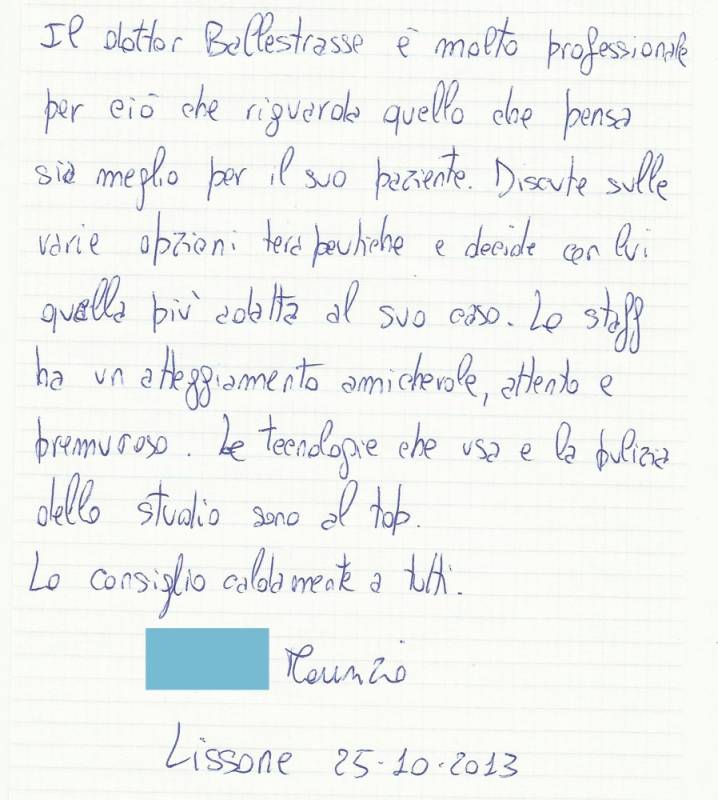 Il dottor Ballestrasse è molto professionale
per ciò che riguarda quello che pensa
sia meglio per il suo paziente. Discute sulle
varie opzioni terapeutiche e decide con lui
quella più adatta al suo caso. Lo staff
ha un atteggiamento amichevole, attento e
premuroso. Le tecnologie che usa e la pulizia
dello studio sono al top.
Lo consiglio caldamente a tutti.
Maurizio
Lissone 25-10-2013